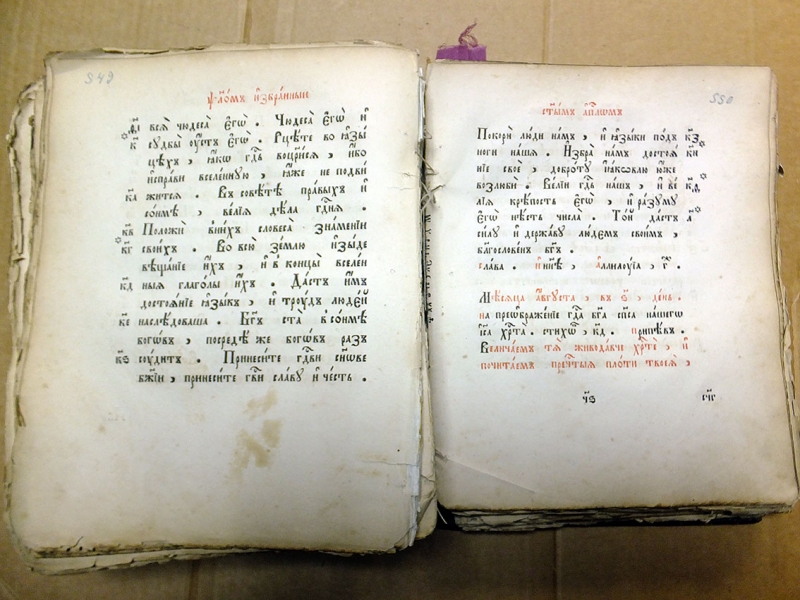 549
ѱл҃о́мъ и҆збра́нныѣ
всѧ̀ чюдеса̀ є҆гѡ̀ . Чюдеса̀ є҆гѡ̀ и҆
к҃ сꙋдбы̀ ᲂу҆стъ є҆гѡ̀ . Рцѣ́те во ꙗ҆зы́
цѣхъ , ꙗ҆́кѡ гдⷭ҇ь воцр҃и́сѧ , и҆́бо
и҆спра́ви вселе́ннꙋю , ꙗ҆́же не подви́
к҃а жи́тсѧ . Въ совѣ́тѣ пра́выхъ и҆
со́нмѣ , ве́лїѧ дѣла̀ гдⷭ҇нѧ .
к҃в Положѝ вни́хъ словеса̀ зна́менїи
к҃г свои́хъ . Во всю̀ зе́млю и҆зы́де
вѣща́нїе и҆́хъ , и҆ в концы̀ вселе́н
к҃д ныѧ глаго́лы и҆́хъ . Да́стъ и҆̀мъ
достоѧ́нїе ꙗ҆зы́къ , и҆ трꙋ́дъ люде́й
к҃е наслѣ́доваша . Бг҃ъ ста̀ в со́нмѣ
бого́въ , посредѣ́ же бого́въ раз
к҃ѕ сꙋ́дитъ . Принеси́те гдⷭ҇ви сн҃ове
бж҃їи , принеси́те гдⷭ҇ви сла́вꙋ и҆ че́сть .
550
ст҃ы́мъ а҆пⷭ҇лѡмъ
Покорѝ лю́ди на́мъ , и҆ ꙗ҆зы́ки под к҃з
но́ги на́ша . И҆збра̀ на́мъ достоѧ́ к҃и
нїе своѐ , добро́тꙋ і҆а́ковлю ю҆́же
возлюбѝ . Ве́лїи гдⷭ҇ь на́шъ , и҆ ве́ к҃ѳ
лїѧ крѣ́пость є҆гѡ̀ , и҆ ра́зꙋмꙋ
є҆гѡ̀ нѣ́сть числа̀ . То́й да́стъ л҃
си́лꙋ и҆ держа́вꙋ лю́демъ свои́мъ ,
благослове́нъ бг҃ъ .
сла́ва . и҆ ны́нѣ , а҆ллилꙋ́їа , г҃ .
Мѣ́сѧца а҆́вгꙋста , въ ѕ҃ , де́нь .
на преѡбраже́нїе гдⷭ҇а бг҃а сп҃са на́шегѡ
і҆с҃а хрⷭ҇та̀ . стихѡ́ , к҃д . припѣ́въ .
Велича́емъ тѧ̀ живода́вче хрⷭ҇тѐ , и҆
почита́емъ пречⷭ҇тыѧ пло́ти твоеѧ̀ ,
ч҃ѕ